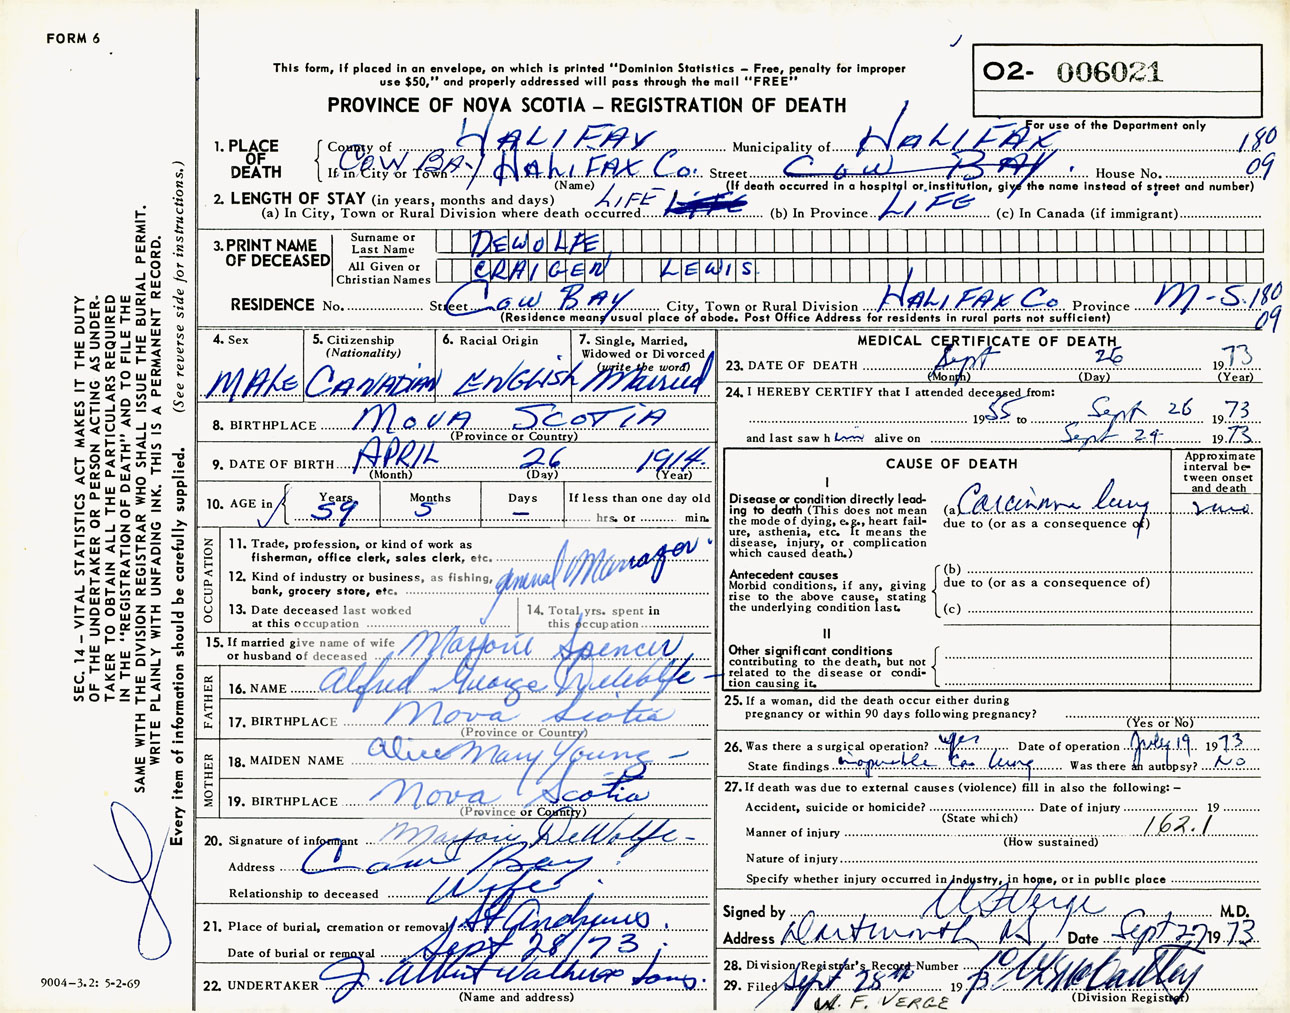 FORM 6
This form, if placed in an envelope, on which is printed "Dominion Statistics – Free, penalty for improper
use $50," and properly addressed will pass through the mail "FREE"
O2- 006021
PROVINCE OF NOVA SCOTIA – REGISTRATION OF DEATH
For use of the Department only
1. PLACE OF DEATH
County of HALIFAX Municipality of HALIFAX 180
If in City or Town COW BAY HALIFAX Co. Street COW BAY House No. 09
(Name) (If death occurred in a hospital or institution, give the name instead of street and number)
2. LENGTH OF STAY (in years, months and days)
(a) In City, Town or Rural Division where death occurred LIFE LIFE (b) In Province LIFE (c) In Canada (if immigrant)
3. PRINT NAME OF DECEASED
Surname or Last Name DEWOLFE
All Given or Christian Names CRAIGEN LEWIS
RESIDENCE No. Street COW BAY City, Town or Rural Division HALIFAX Co Province N-S. 180
(Residence means usual place of abode. Post Office Address for residents in rural parts not sufficient) 09
4. Sex MALE
5. Citizenship (Nationality) CANADIAN
6. Racial Origin ENGLISH
7. Single, Married, Widowed or Divorced (write the word) Married
8. BIRTHPLACE NOVA SCOTIA
(Province or Country)
9. DATE OF BIRTH APRIL 26 1914
(Month) (Day) (Year)
10. AGE in Years 59 Months 5 Days – If less than one day old
hrs. or min.
OCCUPATION
11. Trade, profession, or kind of work as
fisherman, office clerk, sales clerk, etc.
12. Kind of industry or business, as fishing,
bank, grocery store, etc. general Manager
13. Date deceased last worked
at this occupation
14. Total yrs. spent in
this occupation
15. If married give name of wife
or husband of deceased Marjorie Spencer
FATHER
16. NAME Alfred George DeWolfe
17. BIRTHPLACE Nova Scotia
(Province or Country)
MOTHER
18. MAIDEN NAME Alice Mary Young
19. BIRTHPLACE Nova Scotia
(Province or Country)
20. Signature of informant Marjorie DeWolfe
Address Cow Bay
Relationship to deceased Wife
21. Place of burial, cremation or removal St Andrews
Date of burial or removal Sept 28/73
22. UNDERTAKER J. Albert Walker Sons
(Name and address)
MEDICAL CERTIFICATE OF DEATH
23. DATE OF DEATH Sept 26 1973
(Month) (Day) (Year)
24. I HEREBY CERTIFY that I attended deceased from:
1955 to Sept 26 1973
and last saw him alive on Sept 24 1973
CAUSE OF DEATH
Approximate interval between onset and death
I
Disease or condition directly lead-
ing to death (This does not mean
the mode of dying, e.g., heart fail-
ure, asthenia, etc. It means the
disease, injury, or complication
which caused death.)
(a) Carcinoma lung
due to (or as a consequence of)
Antecedent causes
Morbid conditions, if any, giving
rise to the above cause, stating
the underlying condition last.
(b)
due to (or as a consequence of)
(c)
II
Other significant conditions
contributing to the death, but not
related to the disease or condi-
tion causing it.
25. If a woman, did the death occur either during
pregnancy or within 90 days following pregnancy?
(Yes or No)
26. Was there a surgical operation? yes Date of operation July 19 1973
State findings inoperable Ca lung Was there an autopsy? No
27. If death was due to external causes (violence) fill in also the following: –
Accident, suicide or homicide? Date of injury 19
(State which)
Manner of injury 162.1
(How sustained)
Nature of injury
Specify whether injury occurred in industry, in home, or in public place
Signed by W F Verge M.D.
Address Dartmouth NS Date Sept 27 1973
28. Division Registrar's Record Number
29. Filed Sept 28th 1973
(Division Registrar)
W. F. VERGE
SEC. 14 – VITAL STATISTICS ACT MAKES IT THE DUTY
OF THE UNDERTAKER OR PERSON ACTING AS UNDER-
TAKER TO OBTAIN ALL THE PARTICULARS REQUIRED
IN THE "REGISTRATION OF DEATH" AND TO FILE THE
SAME WITH THE DIVISION REGISTRAR WHO SHALL ISSUE THE BURIAL PERMIT.
WRITE PLAINLY WITH UNFADING INK. THIS IS A PERMANENT RECORD.
Every item of information should be carefully supplied. (See reverse side for instructions.)
9004–3.2: 5-2-69